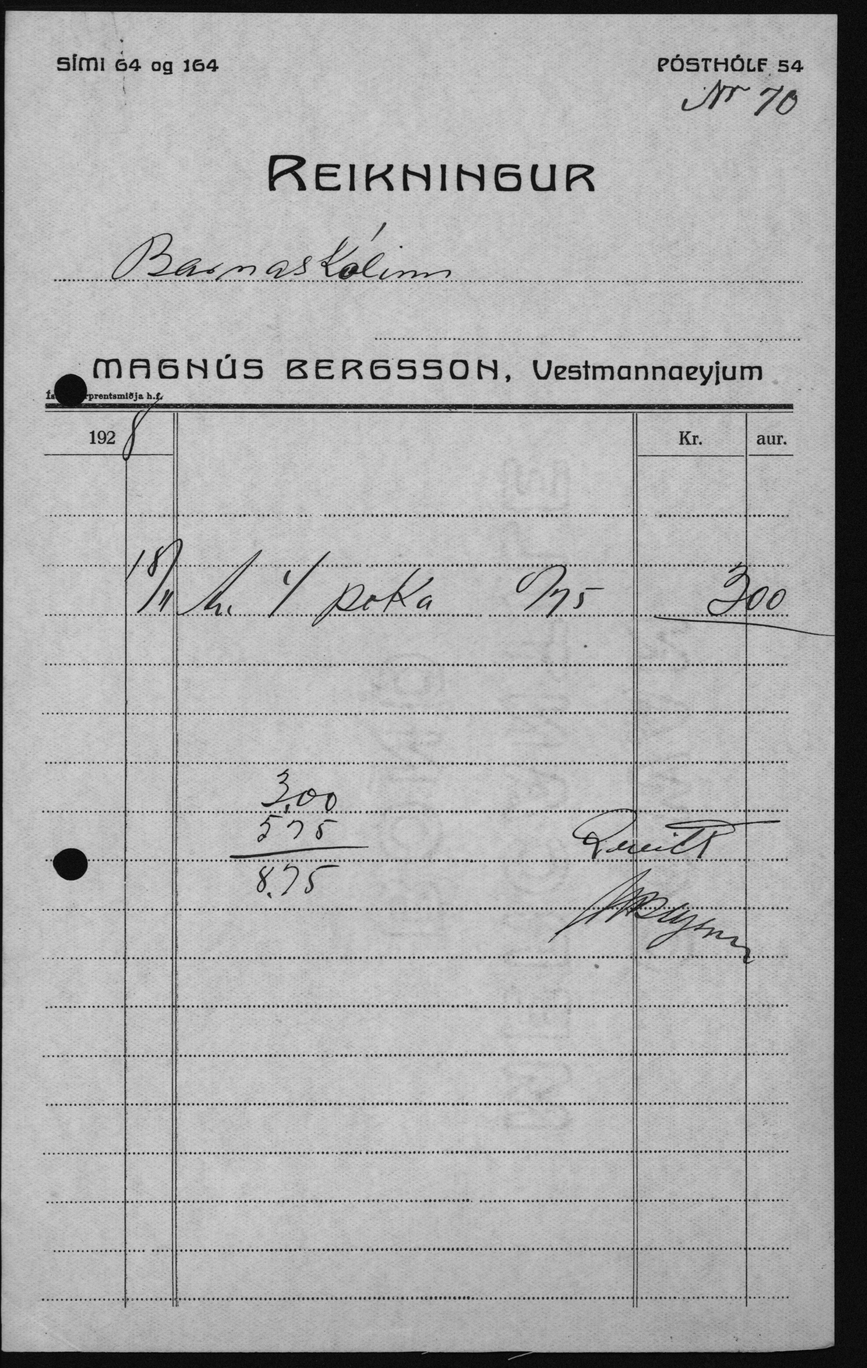 SÍMI 64 og 164
PÓSTHÓLF 54
Nr 70
REIKNINGUR
Barnaskólinn
MAGNÚS BERGSSON, Vestmannaeyjum
prentsmiðja h.f.
1928
Kr. aur.
18/11 4 poka 0/75 3 00
3,00
575
8.75
Kvitt